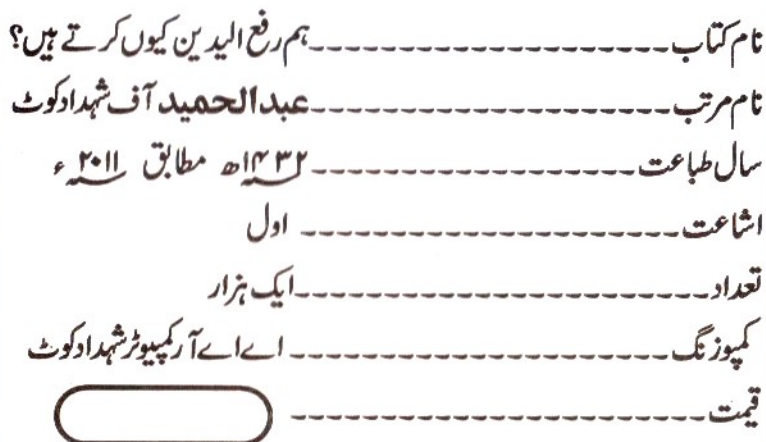 نام کتاب ------------------ ہم رفع الیدین کیوں کرتے ہیں؟
نام مرتب ------------------ عبدالحمید آف شہدادکوٹ
سال طباعت ---------------- ۱۴۳۲ھ مطابق ۲۰۱۱ء
اشاعت ------------------- اول
تعداد -------------------- ایک ہزار
کمپوزنگ ------------------ اے اے آر کمپیوٹر شہدادکوٹ
قیمت --------------------